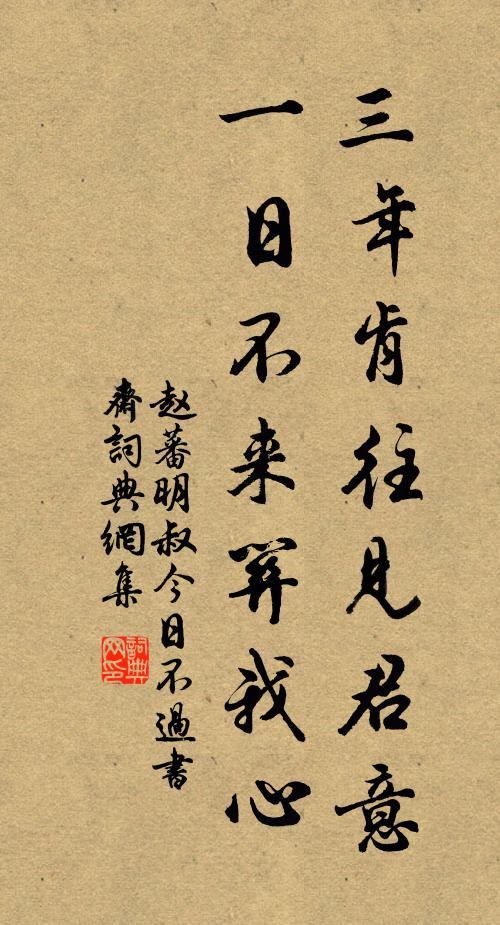 三年肯往见君意
一日不来關我心
赵蕃明叔今日不過書
齋詞典網集
詞典
网印